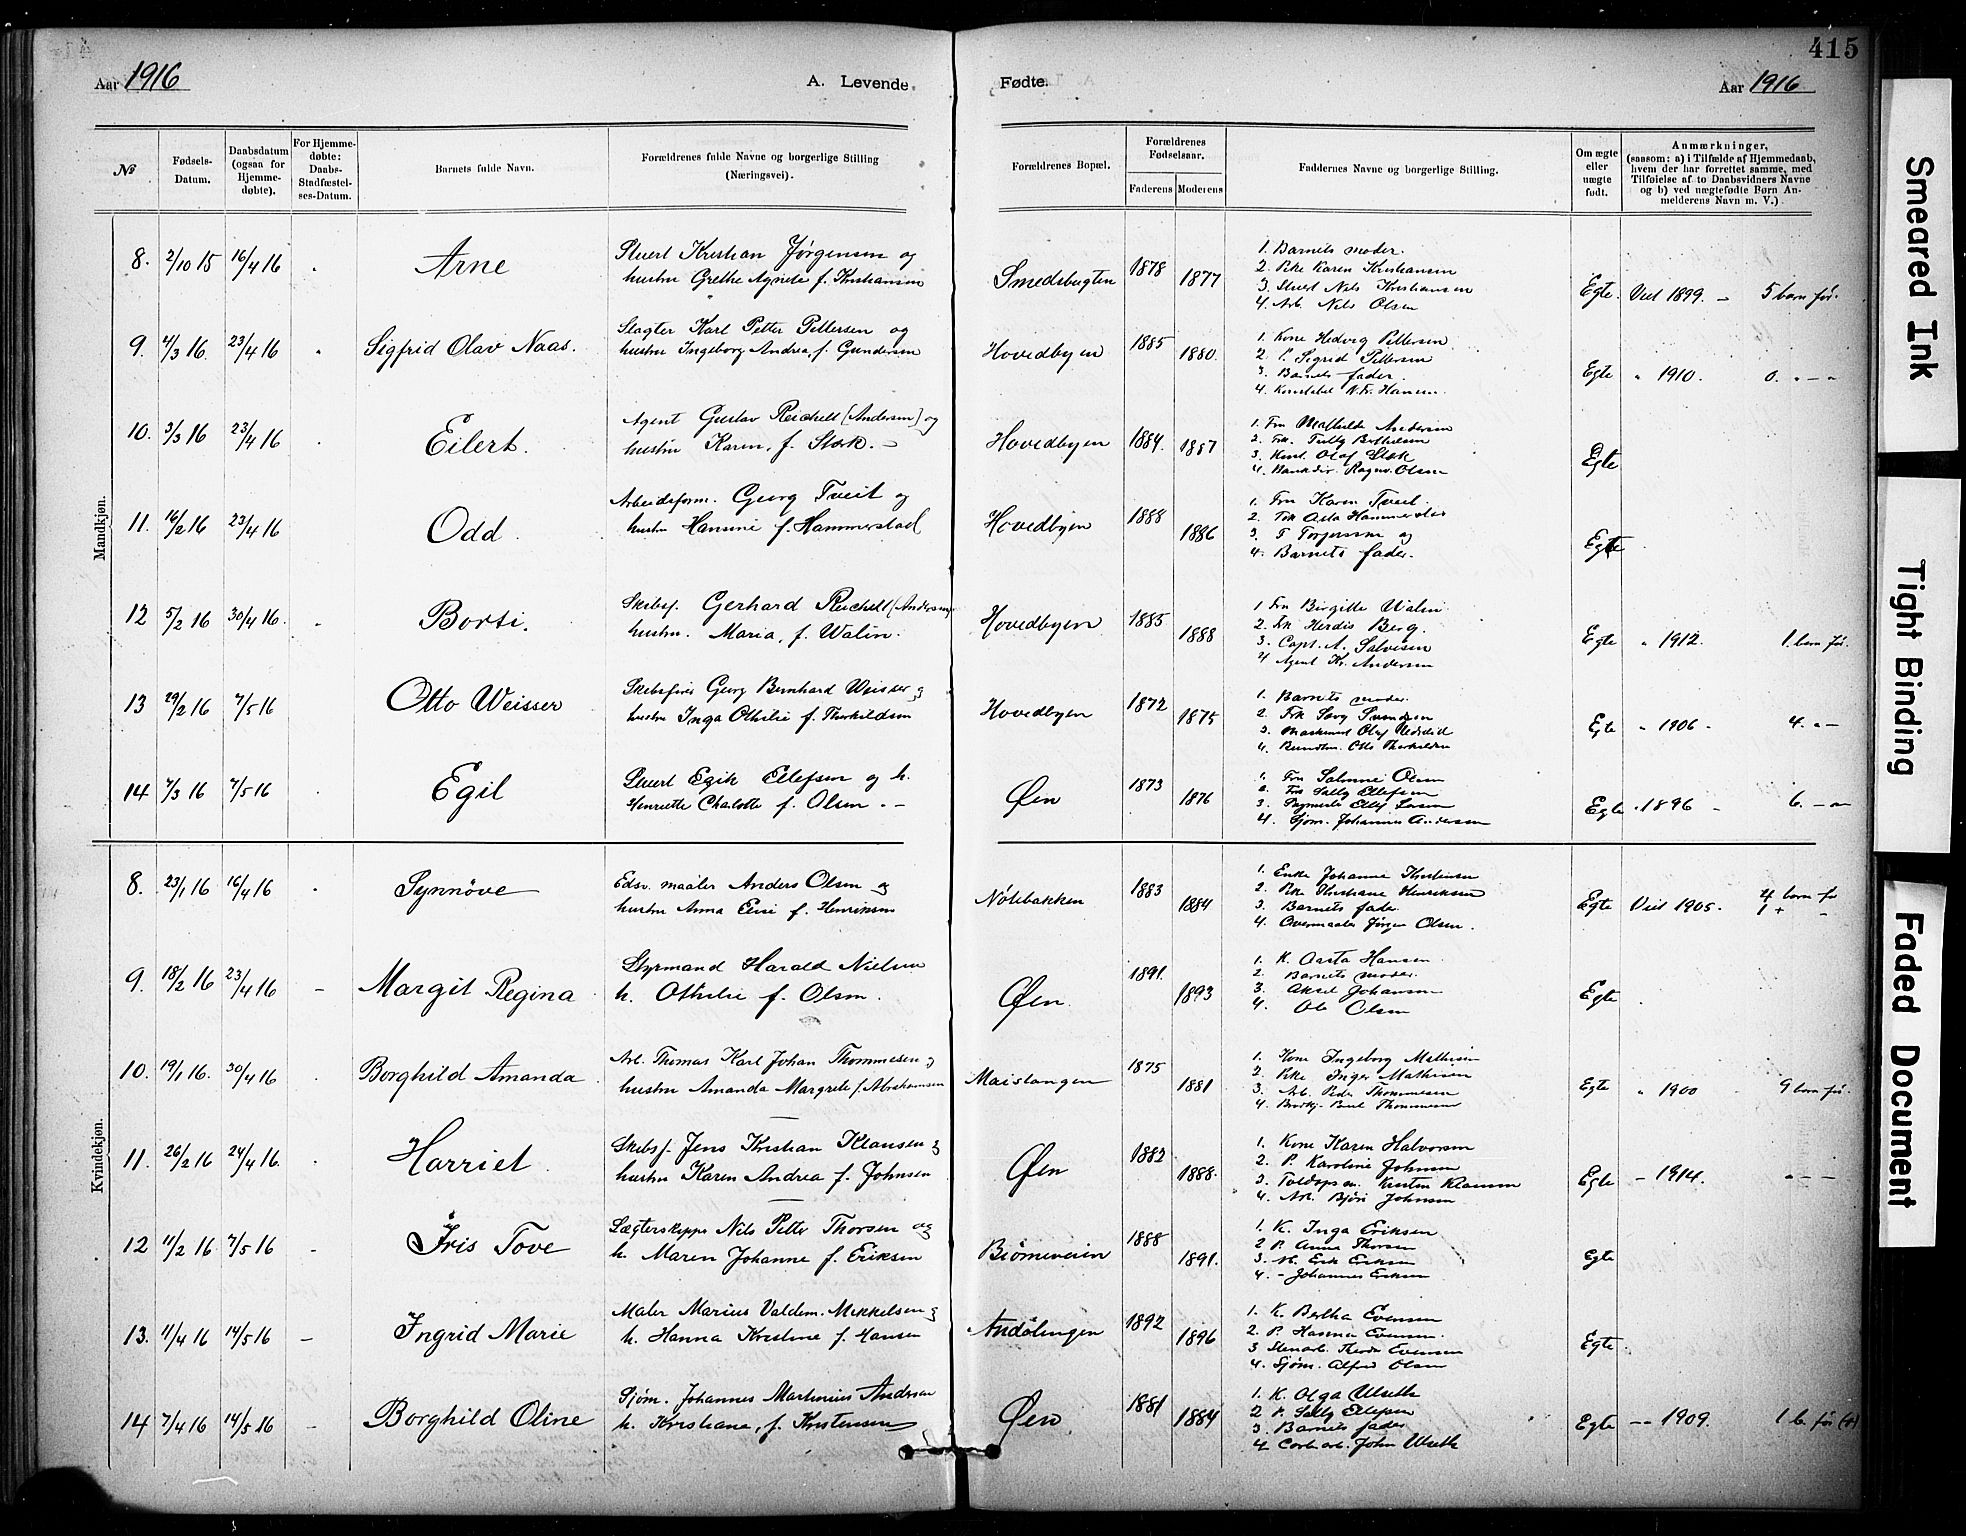 415
Aar 1916
A. Levende
Fødte.
Aar 1916
№
Fødsels-Datum.
Daabsdatum (ogsaa for Hjemmedøbte).
For Hjemmedøbte: Daabs-Stadfæstelses-Datum.
Barnets fulde Navn.
Forældrenes fulde Navne og borgerlige Stilling (Næringsvei).
Forældrenes Bopæl.
Forældrenes Fødselsaar.
Faderens
Moderens
Faddernes Navne og borgerlige Stilling.
Om ægte eller uægte født.
Anmærkninger, (saasom: a) i Tilfælde af Hjemmedaab, hvem der har forrettet samme, med Tilføielse af to Daabsvidners Navne og b) ved uægtefødte Børn Anmelderens Navn m. V.)
Mandkjøn.
8. 2/10 15 16/4 16 Arne
Stuert Kristian Jørgensen og
hustru Grethe Agnete f. Kristiansen
Smedsbugten 1878 1877
1. Barnets moder.
2. Pike Karen Kristiansen
3. Stuert Nils Kristiansen
4. Arb. Nils Olsen
Egte. Viet 1899. – 5 barn før.
9. 4/3 16. 23/4 16 Sigfrid Olav Naas.
Slagter Karl Petter Pettersen og
hustru Ingeborg Andrea f. Gundersen
Hovedbyen 1885 1880.
1. Kone Hedvig Pettersen
2. P. Sigrid Pettersen
3. Barnets fader.
4. Konstabel N. Fr. Hansen.
Egte " 1910. 0. " – "
10. 3/3 16 23/4 16 Eilert.
Agent Gustav Reichelt (Andersen) og
hustru Karen, f. Stok. –
Hovedbyen 1884. 1887
1. Fru Mathilde Andersen
2. Frk. Tully Bothelsen
3. Kont. Olaf Stok
4. Bankdir. Ragnv. Olsen
Egte
11. 16/2 16 23/4 16 Odd.
Arbeidsform. Georg Tveit og
hustru Hansine f. Hammerstad
Hovedbyen 1888 1886
1. Fru Karen Tveit.
2. Frk Asta Hammerstad
3. T Torjussen og
4. Barnets fader.
Egte
12 5/2 16 30/4 16. Borti.
Skibsf. Gerhard Reichelt (Andersen)
hustru. Maria, f. Walin.
Hovedbyen 1885 1888
1 Fru Birgitte Walin
2. Frk Herdis Berg.
3. Capt. A. Salvesen
4 Agent Kr. Andersen
Egte " 1912. 1 barn før.
13 29/2 16 7/5 16 Otto Weisser
Skibsfører Georg Bernhard Weisser og
hustru Inga Othilie f. Thorkildsen
Hovedbyen 1872 1875
1. Barnets moder.
2. Frk Svendsen
3. Maskinist Olaf
4. Otto Thorkildsen
Egte " 1906 – 4. " –
14 7/3 16 7/5 16 Egil
Stuert Egik Ellefsen og h.
Henriette Charlotte f. Olsen. –
Øen 1873 1876
1. Fru Salmine Olsen
2. Frk Selly Ellefsen
3. Elly
4. Sjøm. Johannes Andersen
Egte " 1896 – 6. – "
Kvindekjøn.
8. 23/1 16 16/4 16 Synnöve
Edsv. maaler Anders Olsen og
hustru Anna Elise f. Henriksen
Nölebakken 1883 1884
1. Enke Johanne Kristensen
2. Pike Kristiane Henriksen
3. Barnets fader
4. Overmaaler Jørgen Olsen.
Egte Viet 1905. 4 barn før
1 + –
9. 18/2 16 23/4 16 – Margit Regina
Styrmand Harald Nielsen
h. Othilie f. Olsen.
Øen. 1891. 1893
1. K. Aasta Hansen
2. Barnets moder.
3. Aksel Johansen
4. Ole Olsen
Egte
10. 19/1 16. 30/4 16 Borghild Amanda
Arb. Thomas Karl Johan Thommesen og
hustru Amanda Margrete f. Abrahamsen
Maislangen 1875 1881
1. Kone Ingeborg Mathisen
2. Pike Inger Mathisen
3. Arb. Peder Thommesen
4. Thommesen
Egte " 1900 9 barn før.
11. 26/2 16 24/4 16. Harriet.
Skibsf. Jens Kristian Klausen og
hustru Karen Andrea f. Johnsen
Øen 1882 1888.
1. Kone Karen Halvorsen
2. P. Karoline Johnsen
3. Toldops. Kristen Klausen
4. Arb. Bjön Johnsen
Egte – 1914. " – –
12 11/2 16 7/5 16 – Iris Tove
Lægterskipper Nils Petter Thorsen og
h. Maren Johanne f. Eriksen
Biömeveien 1888 1891.
1. K. Inga Eriksen
2 P. Anna Thorsen
3. M. Erik Eriksen
4. – Johannes Eriksen
Egte
13. 11/4 16 14/5 16 – Ingrid Marie
Maler Marius Valdem. Mikkelsen og
h. Hanna Kristine f. Hansen
Andölingen 1892 1896
1. K. Bertha Evensen
2. P. Hasma Evensen.
3 Stenarb. Thorv. Evensen
4. Sjøm. Alfred Olsen
Egte.
14 7/4 16 14/5 16 – Borghild Oline
Sjøm. Johannes Martinius Andersen
h. Kristiana, f. Kristensen
Øen 1881 1884
1. K. Olga Ulseth
2 P. Selly Ellefsen
3. Barnets fader
4 John Ulseth
Egte – – 1909. 1 b. før (+)
Smeared Ink
Tight Binding
Faded Document